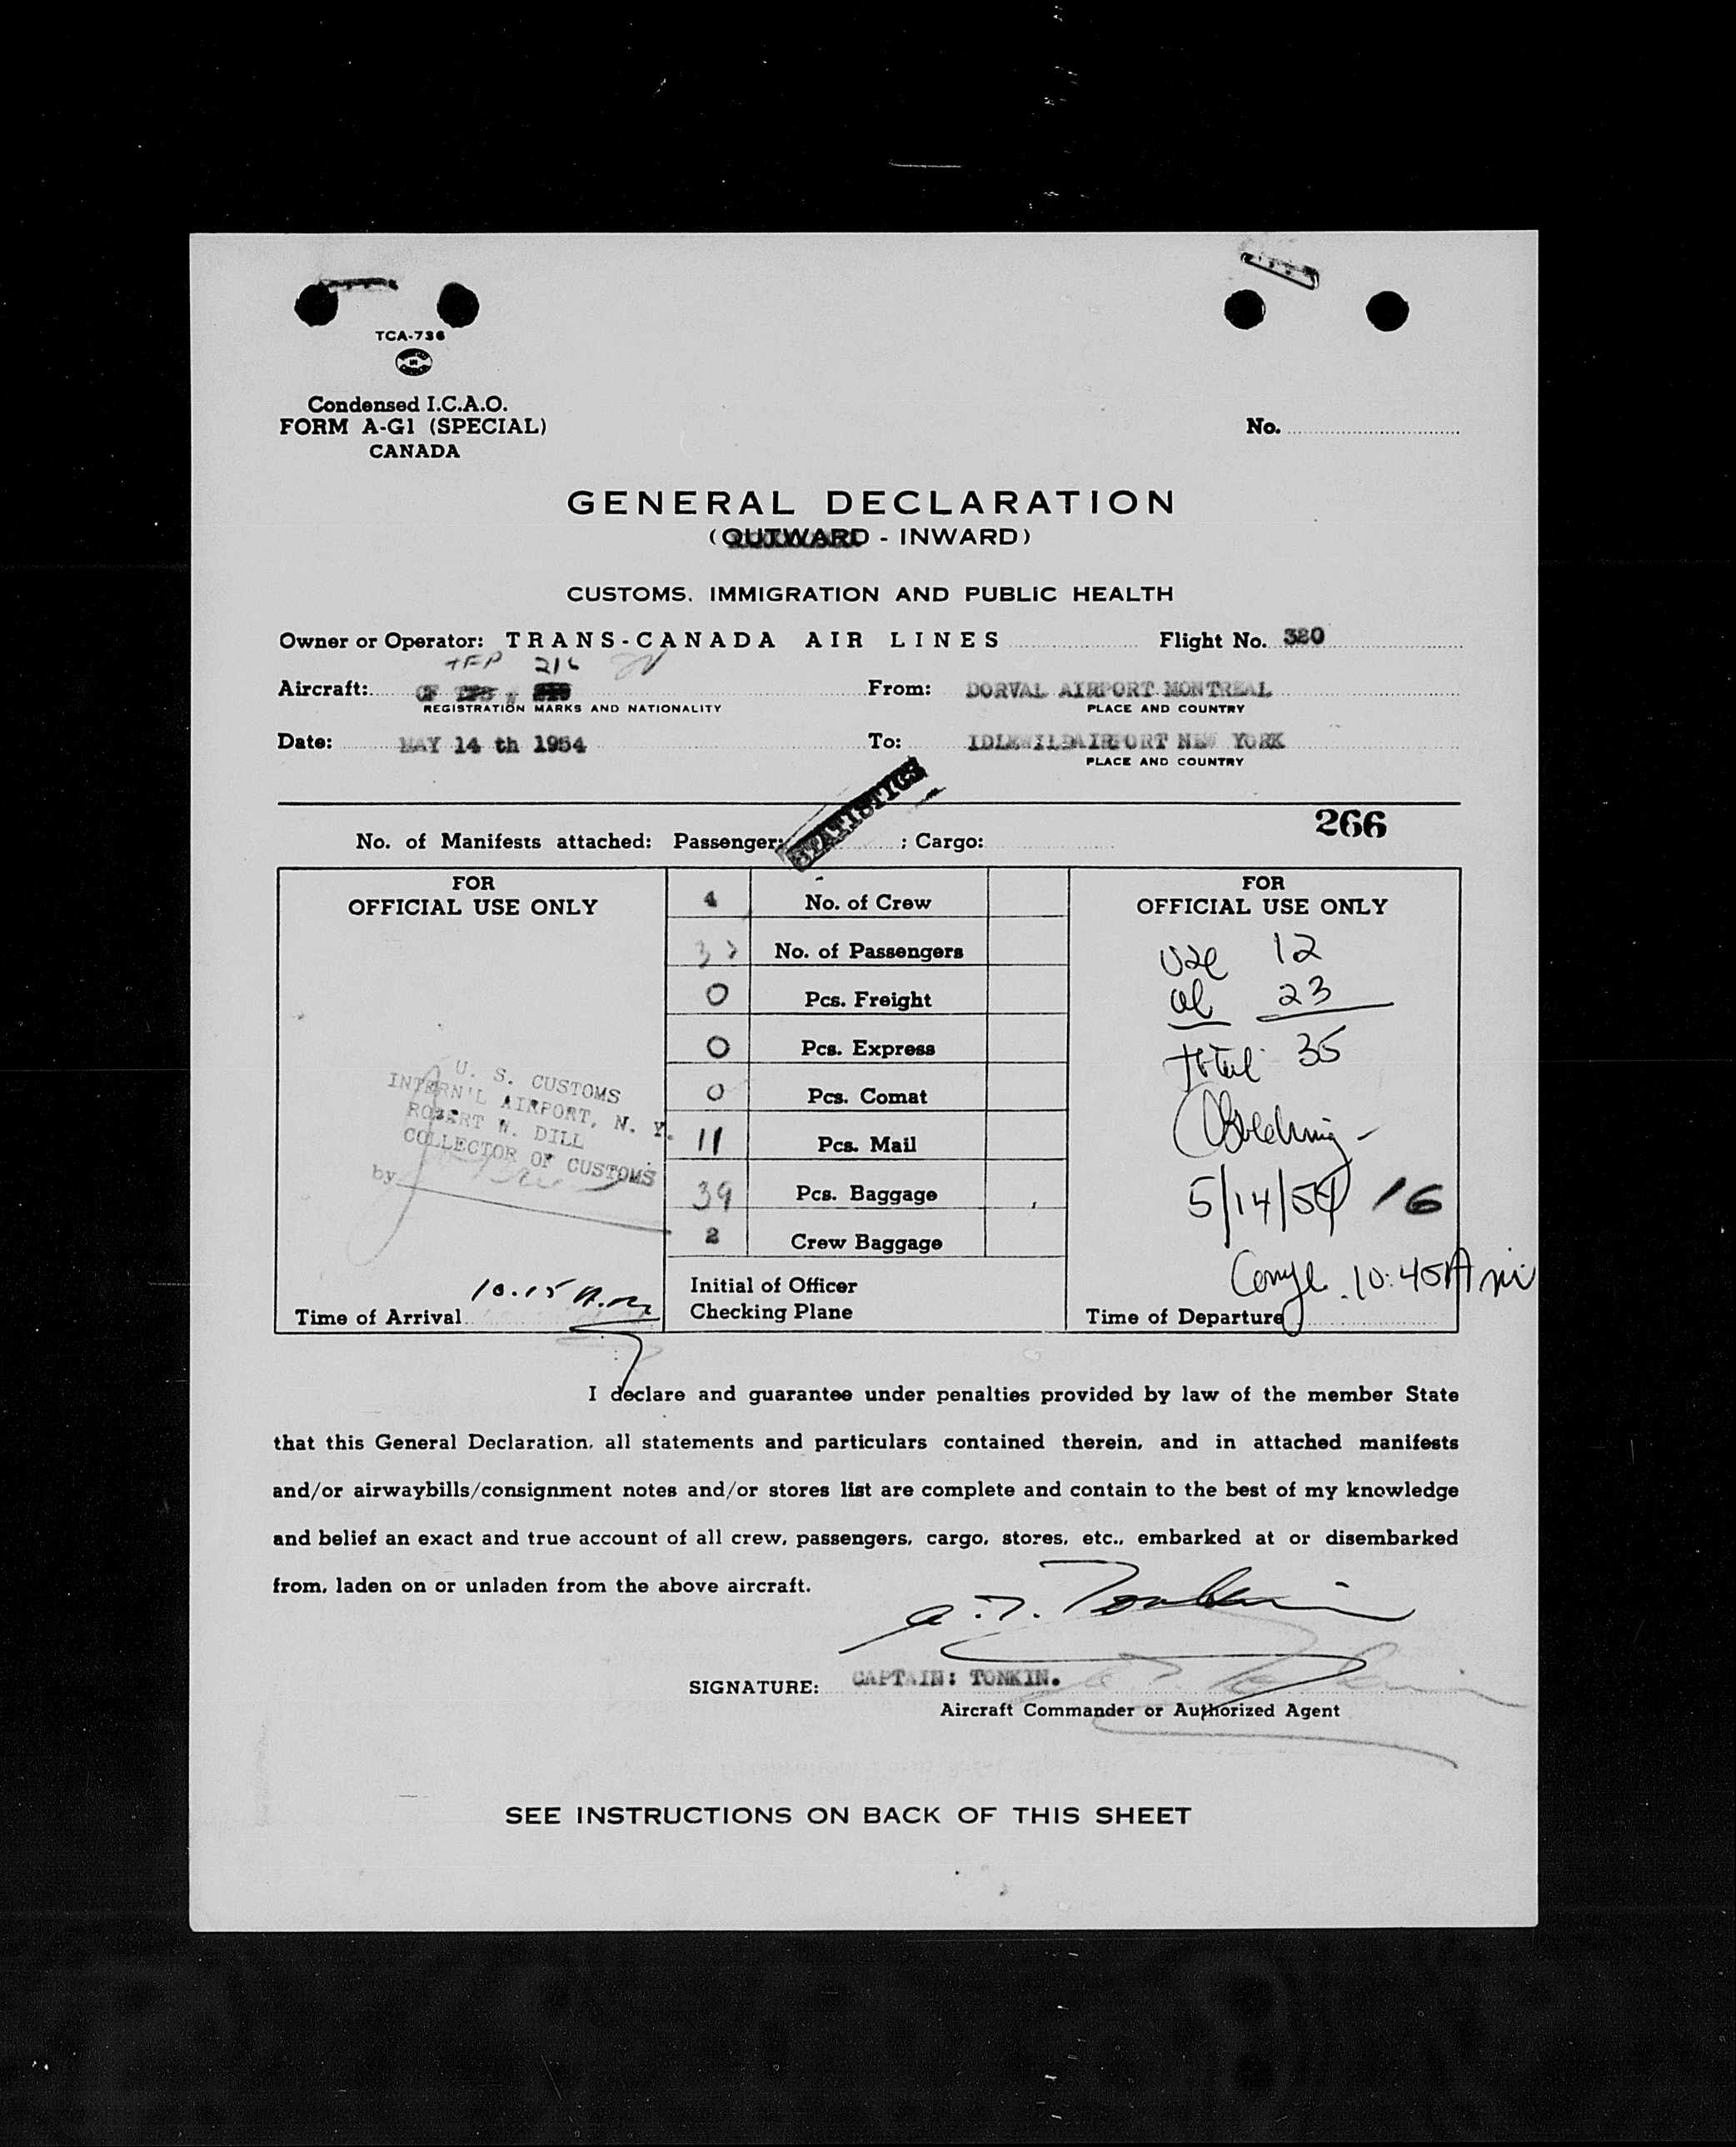 TCA-736
Condensed I.C.A.O.
FORM A-G1 (SPECIAL)
CANADA
No.
GENERAL DECLARATION
(OUTWARD - INWARD)
CUSTOMS, IMMIGRATION AND PUBLIC HEALTH
Owner or Operator: TRANS-CANADA AIR LINES Flight No. 320
TFP 216
Aircraft: CF From: DORVAL AIRPORT MONTREAL
REGISTRATION MARKS AND NATIONALITY PLACE AND COUNTRY
Date: MAY 14 th 1954 To: IDLEWILDAIRPORT NEW YORK
PLACE AND COUNTRY
STATISTICS
266
No. of Manifests attached: Passenger: ; Cargo:
FOR
OFFICIAL USE ONLY
U. S. CUSTOMS
INTERN'L AIRPORT, N. Y.
ROBERT W. DILL
COLLECTOR OF CUSTOMS
by
Time of Arrival 10.15 A.m
4 No. of Crew
No. of Passengers
0 Pcs. Freight
0 Pcs. Express
0 Pcs. Comat
11 Pcs. Mail
39 Pcs. Baggage
2 Crew Baggage
Initial of Officer
Checking Plane
FOR
OFFICIAL USE ONLY
12
al 23
total 35
5/14/54 16
10:45 Am
Time of Departure
I declare and guarantee under penalties provided by law of the member State
that this General Declaration, all statements and particulars contained therein, and in attached manifests
and/or airwaybills/consignment notes and/or stores list are complete and contain to the best of my knowledge
and belief an exact and true account of all crew, passengers, cargo, stores, etc., embarked at or disembarked
from, laden on or unladen from the above aircraft.
SIGNATURE: CAPTAIN: TONKIN.
Aircraft Commander or Authorized Agent
SEE INSTRUCTIONS ON BACK OF THIS SHEET